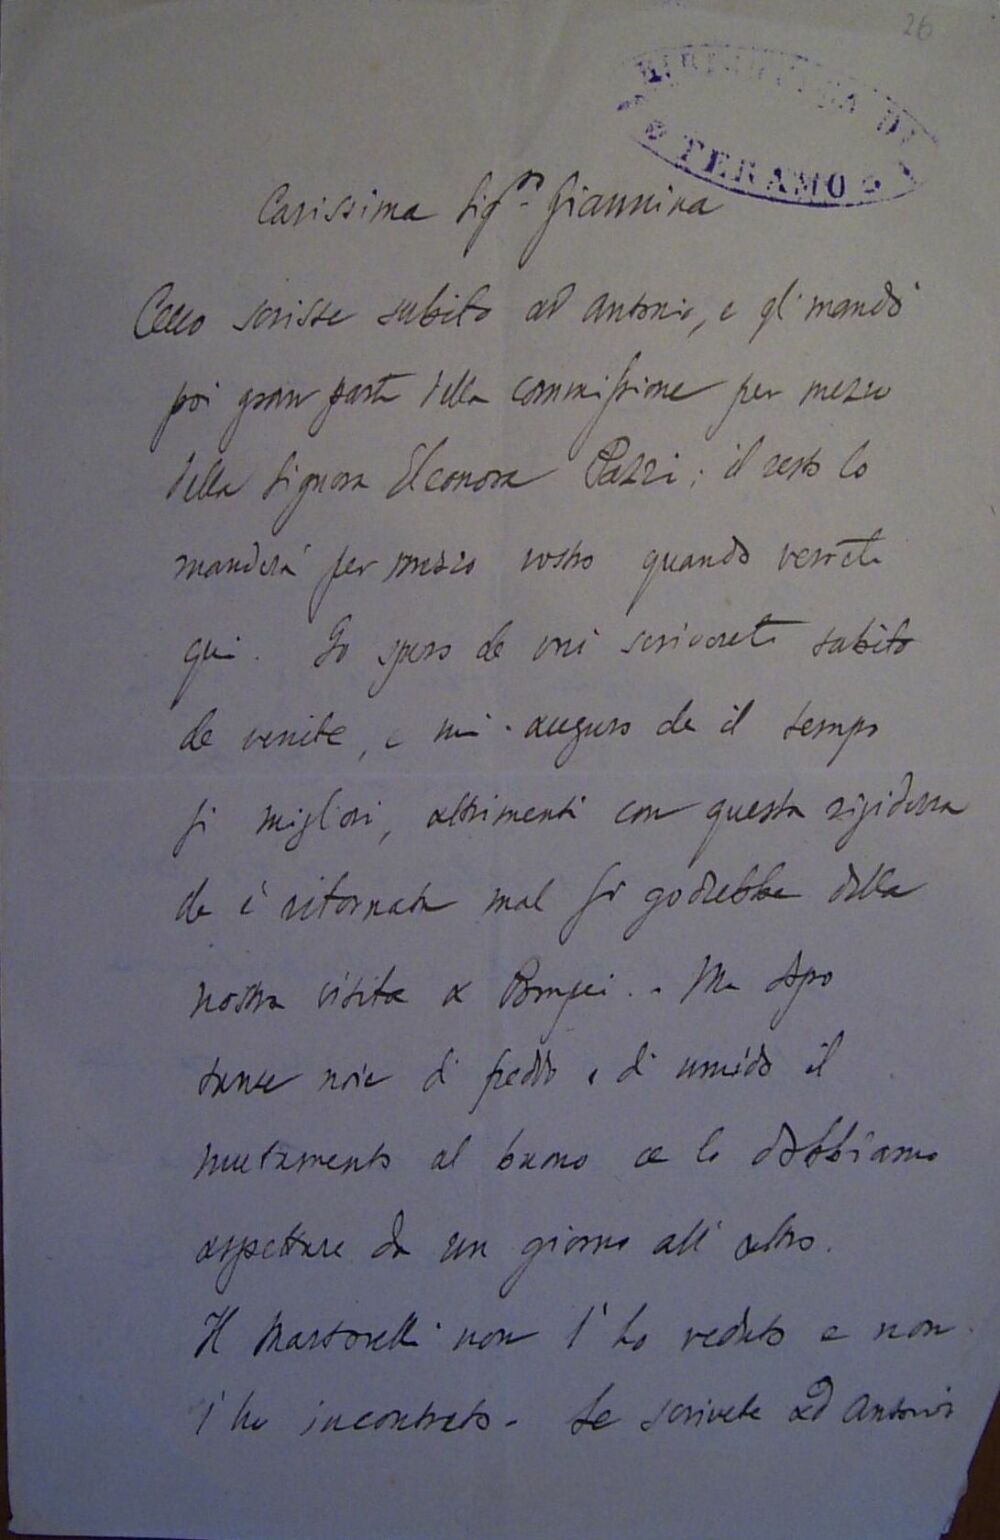 26
BIBLIOTECA DI
TERAMO
Carissima Sig.ra Giannina
Cecco scrisse subito ad Antonio, e gli mandò
poi gran parte della commissione per mezzo
della Signora Eleonora Pazzi; il resto lo
manderà per mezzo vostro quando verrete
qui. Io spero che mi scriverete subito
che venite, e mi auguro che il tempo
si migliori, altrimenti con questa rigidezza
che è ritornata mal si godrebbe della
nostra visita a Pompei. - Ma dopo
tante noie di freddo e di umido il
mutamento al buono ce lo dobbiamo
aspettare da un giorno all'altro.
Il Martorelli non l'ho veduto e non
l'ho incontrato - Se scrivete ad Antonio